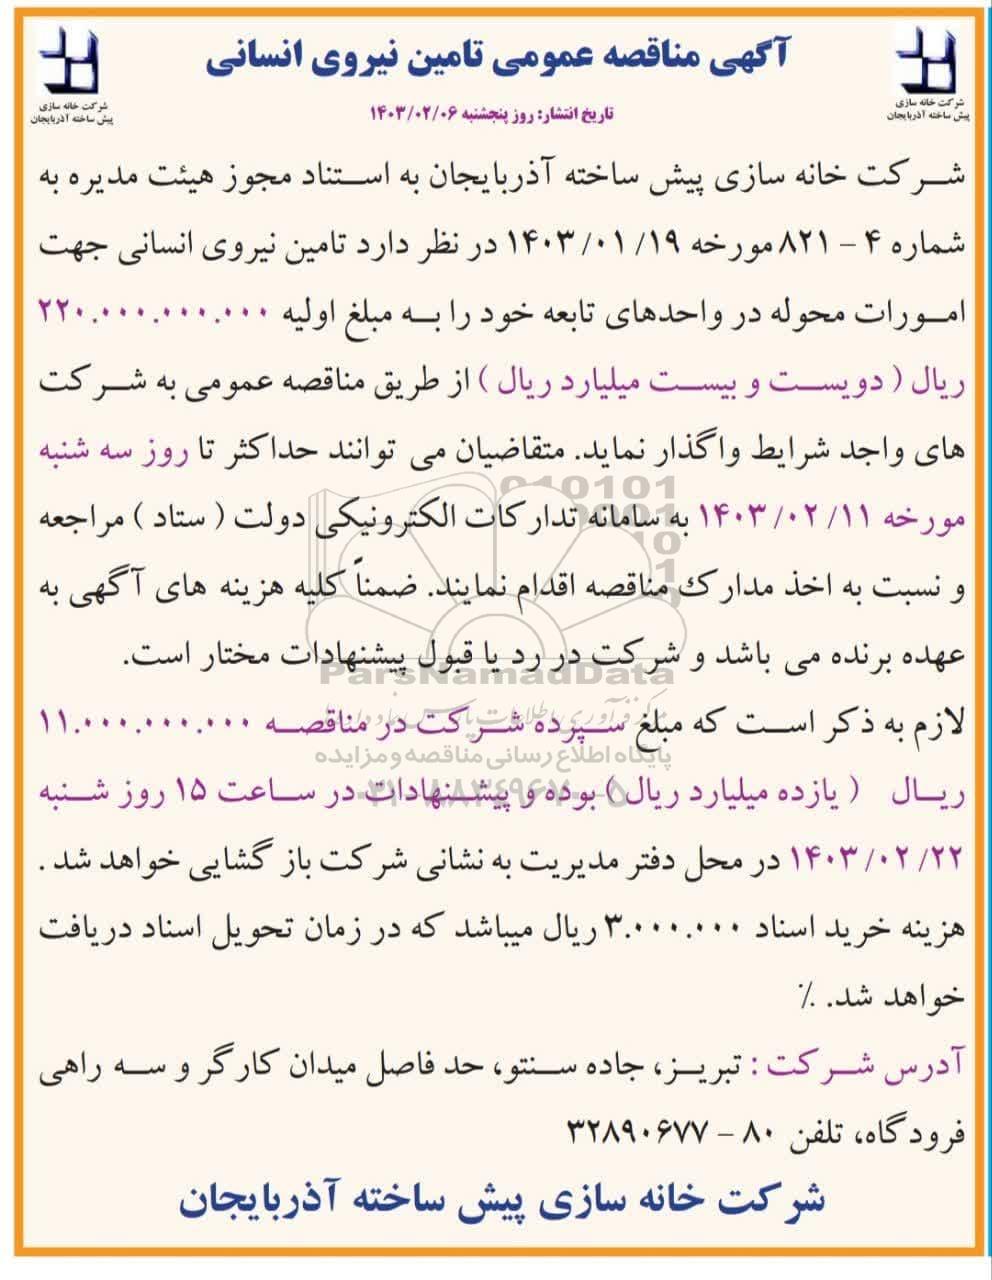 آگهی مناقصه عمومی تامین نیروی انسانی
شرکت خانه سازی
پیش ساخته آذربایجان
شرکت خانه سازی
پیش ساخته آذربایجان
تاریخ انتشار: روز پنجشنبه ۱۴۰۳/۰۲/۰۶
شرکت خانه سازی پیش ساخته آذربایجان به استناد مجوز هیئت مدیره به
شماره ۴ - ۸۲۱ مورخه ۱۴۰۳/۰۱/۱۹ در نظر دارد تامین نیروی انسانی جهت
امورات محوله در واحدهای تابعه خود را به مبلغ اولیه ۲۲۰.۰۰۰.۰۰۰.۰۰۰
ریال ( دویست و بیست میلیارد ریال ) از طریق مناقصه عمومی به شرکت
های واجد شرایط واگذار نماید. متقاضیان می توانند حداکثر تا روز سه شنبه
مورخه ۱۴۰۳/۰۲/۱۱ به سامانه تدارکات الکترونیکی دولت ( ستاد ) مراجعه
و نسبت به اخذ مدارک مناقصه اقدام نمایند. ضمناً کلیه هزینه های آگهی به
عهده برنده می باشد و شرکت در رد یا قبول پیشنهادات مختار است.
ParsNamadData
لازم به ذکر است که مبلغ سپرده شرکت در مناقصه ۱۱.۰۰۰.۰۰۰.۰۰۰
پایگاه اطلاع رسانی مناقصه و مزایده
ریال ( یازده میلیارد ریال ) بوده و پیشنهادات در ساعت ۱۵ روز شنبه
۱۴۰۳/۰۲/۲۲ در محل دفتر مدیریت به نشانی شرکت باز گشایی خواهد شد .
هزینه خرید اسناد ۳.۰۰۰.۰۰۰ ریال میباشد که در زمان تحویل اسناد دریافت
خواهد شد. ٪
آدرس شرکت : تبریز، جاده سنتو، حد فاصل میدان کارگر و سه راهی
فرودگاه، تلفن ۸۰ - ۳۲۸۹۰۶۷۷
شرکت خانه سازی پیش ساخته آذربایجان